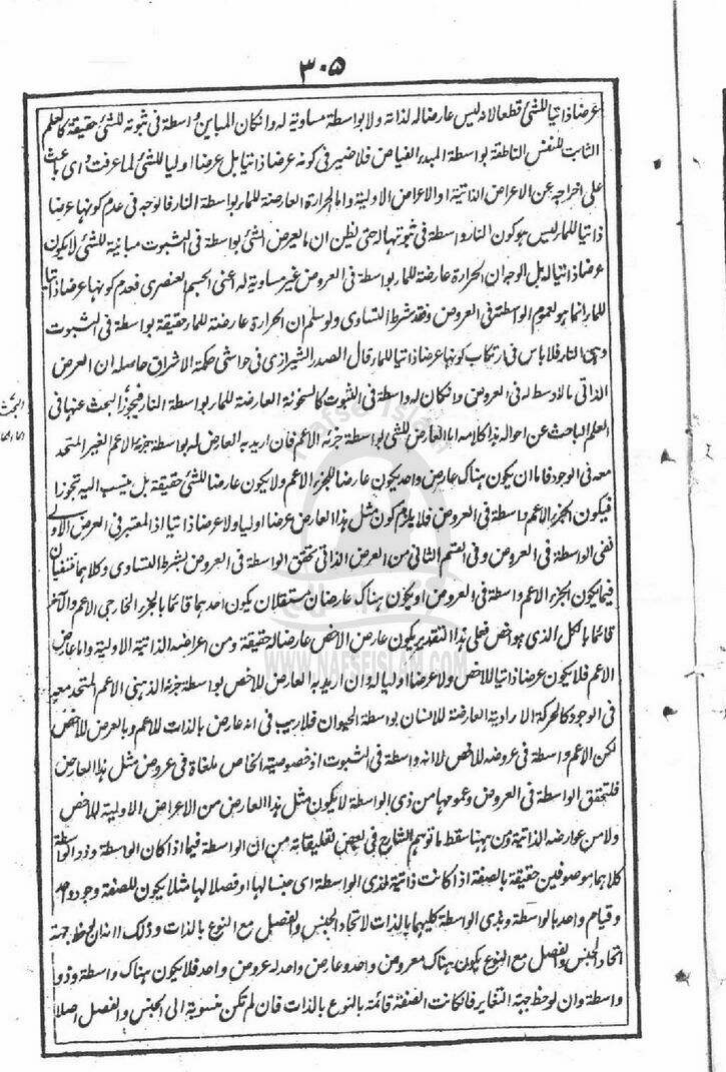 ۳۰۵
عرضا ذاتيا للشئ قطعا لانه ليس عارضا له لذاته ولا بواسطة مساوية له وانكان المباين واسطة فى ثبوته للشئ حقيقة كالعلم
الثابت للنفس الناطقة بواسطة المبدء الفياض فلا ضير فى كونه عرضا ذاتيا بل عرضا اوليا للشئ لما عرفت واى باعث
على اخراجه عن الاعراض الذاتية او الاعراض الاولية واما الحرارة العارضة للماء بواسطة النار فالوجه فى عدم كونها عرضا
ذاتيا للماء ليس هو كون النار واسطة فى ثبوتها له حتى يظن ان ما يعرض الشئ بواسطة فى الثبوت مباينة للشئ لا يكون
عرضا ذاتيا له بل الوجه ان الحرارة عارضة للماء بواسطة فى العروض غير مساوية له اعنى الجسم العنصرى فعدم كونها عرضا ذاتيا
للماء انما هو لعموم الواسطة فى العروض وفقد شرط التساوى ولو سلم ان الحرارة عارضة للماء حقيقة بواسطة فى الثبوت
وهى النار فلا باس فى ارتكاب كونها عرضا ذاتيا للماء قال الصدر الشيرازى فى حواشى حكمة الاشراق حاصله ان العرض
الذاتى ما لا وسط له فى العروض وانكان له واسطة فى الثبوت كالسخونة العارضة للماء بواسطة النار فيجوز البحث عنها فى
العلم الباحث عن احواله هذا كلامه اما العارض للشئ بواسطة جزئه الاعم فان اريد به العارض له بواسطة جزئه الاعم الغير المتحد
معه فى الوجود فاما ان يكون هناك عارض واحد يكون عارضا للجزء الاعم ولا يكون عارضا للشئ حقيقة بل ينسب اليه تجوزا
فيكون الجزء الاعم واسطة فى العروض فلا يلزم كون مثل هذا العارض عرضا اوليا ولا عرضا ذاتيا اذ المعتبر فى العرض الاولى
نفى الواسطة فى العروض وفى القسم الثانى من العرض الذاتى تحقق الواسطة فى العروض بشرط التساوى وكلاهما منتفيان
فيما يكون الجزء الاعم واسطة فى العروض او يكون هناك عارضان مستقلان يكون احدهما قائما بالجزء الخارجى الاعم والآخر
قائما بالكل الذى هو اخص فعلى هذا التقدير يكون عارض الاخص عارضا له حقيقة ومن اعراضه الذاتية الاولية واما عارض
الاعم فلا يكون عرضا ذاتيا للاخص ولا عرضا اوليا له وان اريد به العارض للاخص بواسطة جزئه الذهنى الاعم المتحد معه
فى الوجود كالحركة الارادية العارضة للانسان بواسطة الحيوان فلا ريب فى انه عارض بالذات للاعم وبالعرض للاخص
لكن الاعم واسطة فى عروضه للاخص لا انه واسطة فى الثبوت اذ خصوصية الخاص ملغاة فى عروض مثل هذا العارض
فلتحقق الواسطة فى العروض وعمومها من ذى الواسطة لا يكون مثل هذا العارض من الاعراض الاولية للاخص
ولا من عوارضه الذاتية ومن ههنا سقط ما توهم الشارح فى بعض تعليقاته من ان الواسطة فيما اذا كان الواسطة وذو الواسطة
كلاهما موصوفين حقيقة بالصفة اذا كانت ذاتية لذى الواسطة اى جنسا لها او فصلا لها مثلا يكون للصفة وجود واحد
وقيام واحد بالواسطة وبذى الواسطة كليهما بالذات لاتحاد الجنس والفصل مع النوع بالذات وذلك لانه ان لوحظ جهة
اتحاد الجنس والفصل مع النوع يكون هناك معروض واحد وعارض واحد له عروض واحد فلا يكون هناك واسطة وذو
واسطة وان لوحظ جهة التغاير فالكانت الصفة قائمة بالنوع بالذات فان لم تكن منسوبة الى الجنس والفصل اصلا
WWW.NAFSEISLAM.COM